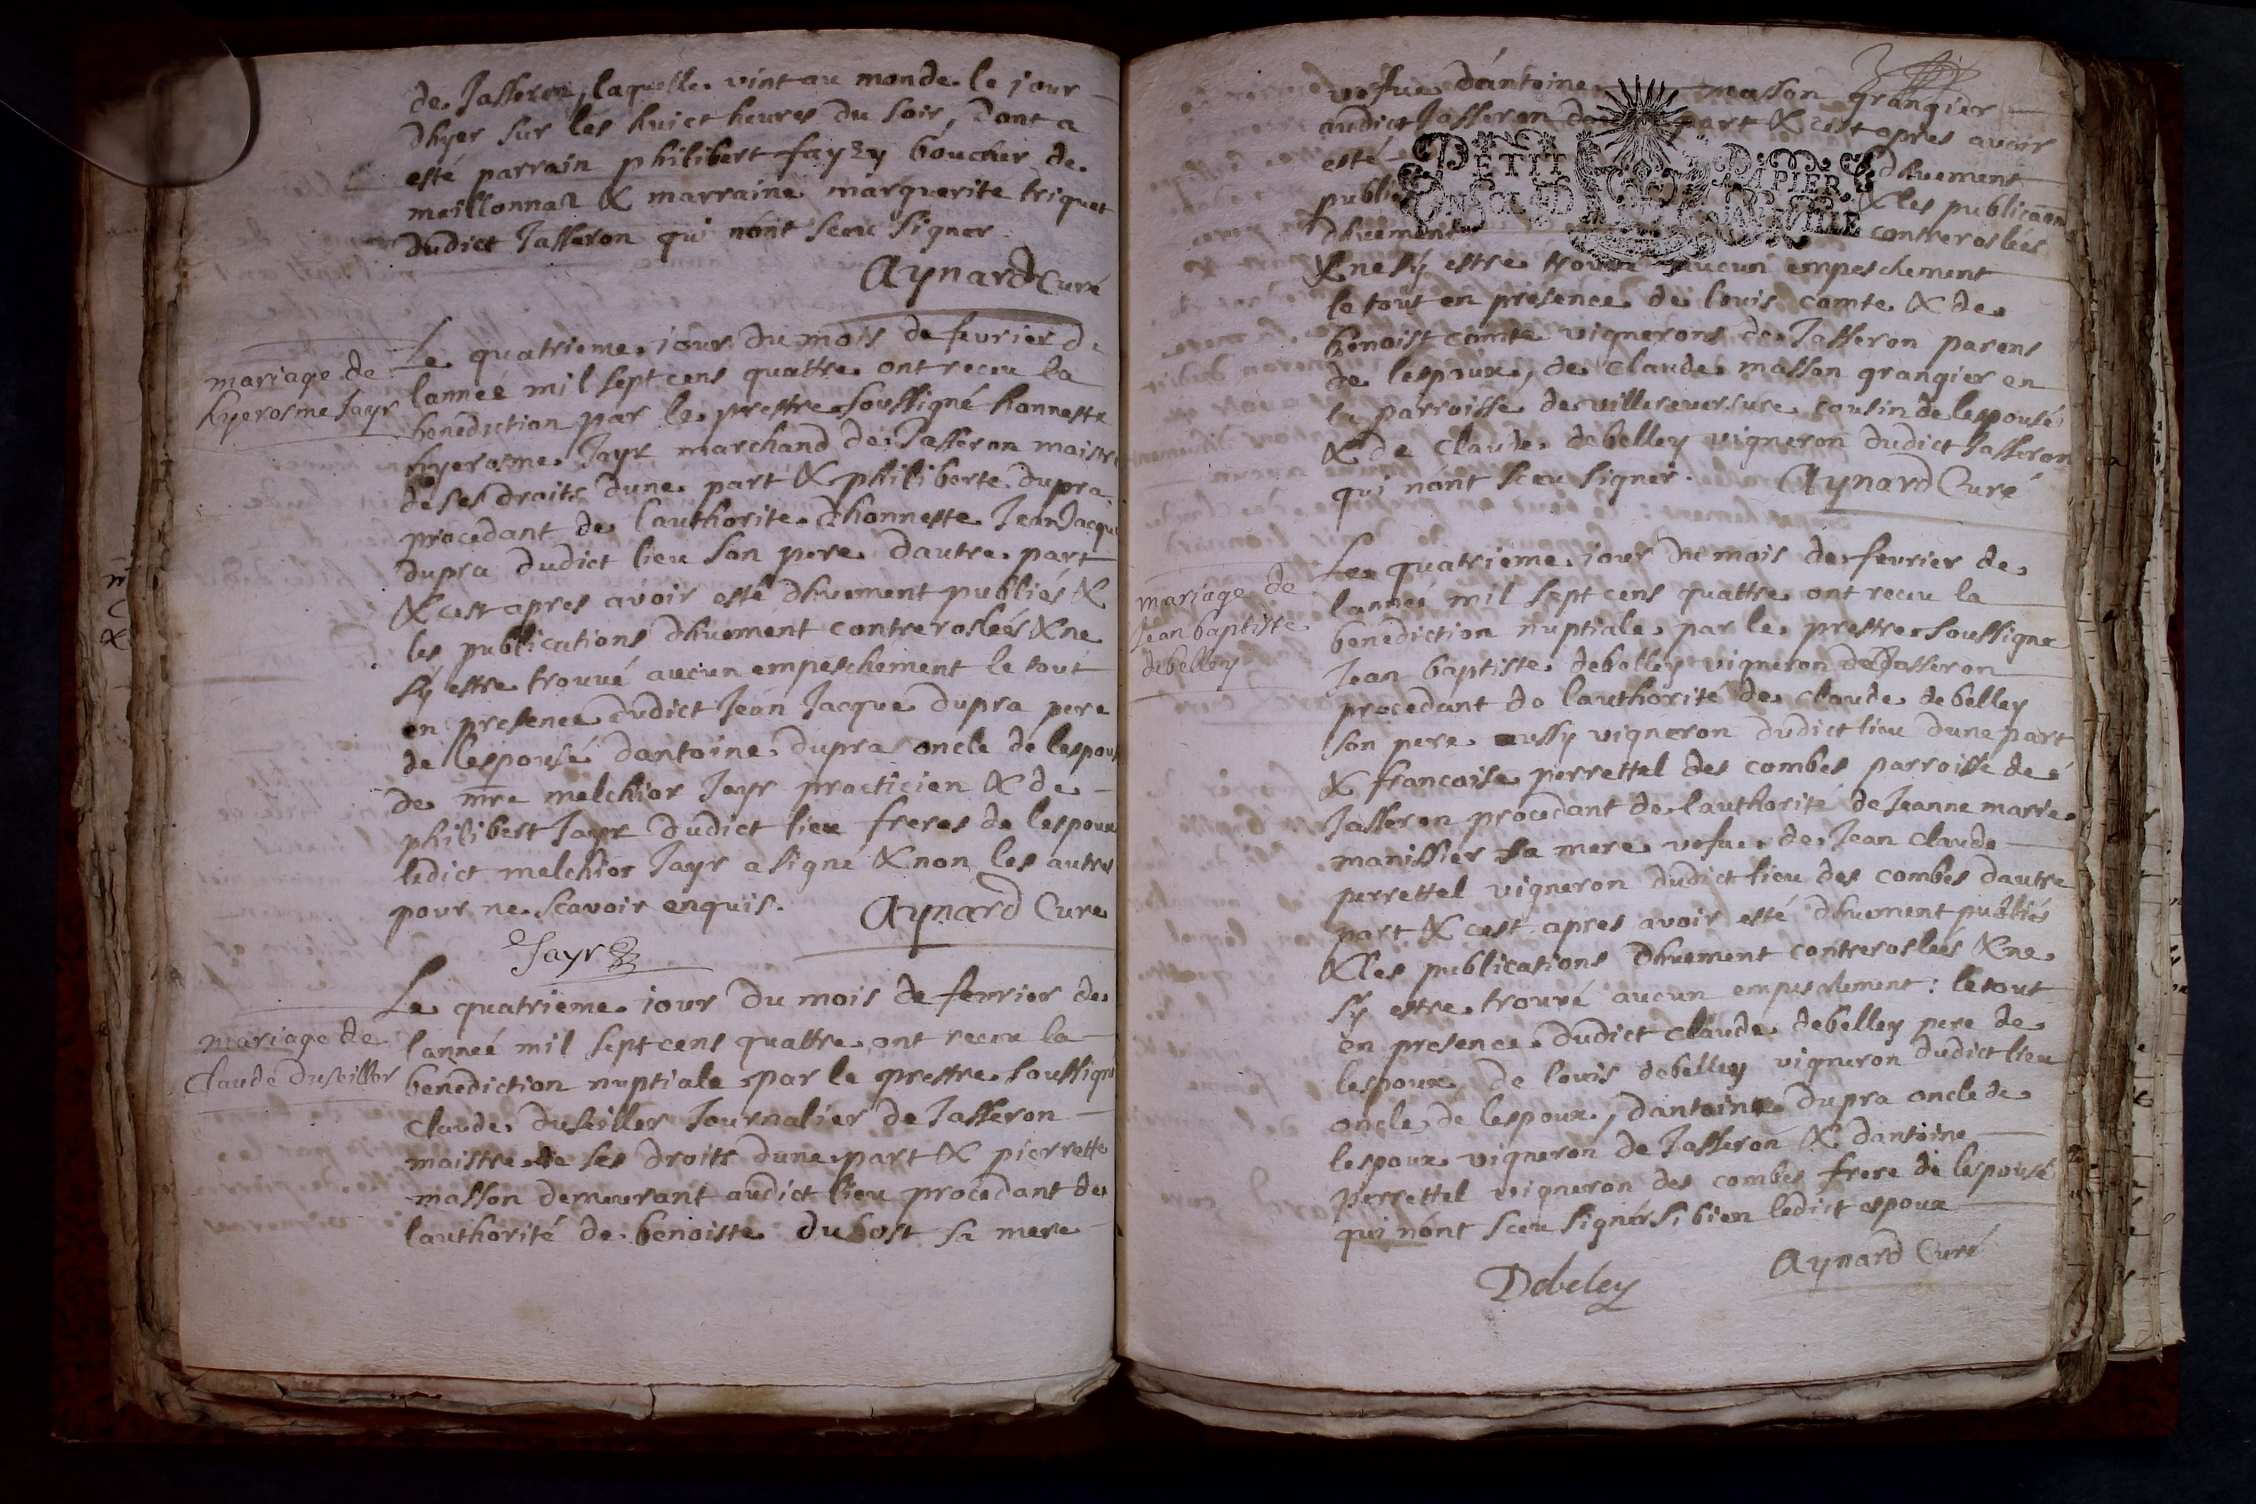 de Jasseron, laquelle vint au monde le jour
dhyer sur les huict heures du soir, dont a
esté parrain philibert fayzy boucher de
meillonnaz & marraine marguerite triquet
dudict Jasseron qui nont sceu signer.
Aynard Curé
mariage de
hyerosme Jayr
Le quatrieme jour du mois de fevrier de
lanneé mil sept cens quattre ont receu la
benediction par le prestre soussigné honneste
hyerosme Jayr marchand de Jasseron maistre
de ses droits dune part & philiberte dupra
procedant de lauthorite dhonneste Jean Jacque
dupra dudict lieu son pere dautre part
& cest apres avoir esté dhuement publiés &
les publications dhuement contreroslées & ne
sy estre trouvé aucun empeschement le tout
en presence dudict Jean Jacque dupra pere
de lespousé dantoine dupra oncle de lespouse
de mre melchior Jayr practicien & de
philibert Jayr dudict lieu freres de lespoux
ledict melchior Jayr a signé & non les autres
pour ne scavoir enquis. Aynard Curé
Jayr
mariage de
Claude duseiller
Le quatrieme jour du mois de fevrier de
lanneé mil sept cens quattre ont receu la
benediction nuptiale par le prestre soussigné
claude duseiller Journalier de Jasseron
maistre de ses droits dune part & pierrette
masson demeurant audict lieu procedant de
lauthorité de benoiste dubost sa mere
vefue dantoine masson grangier
audict Jasseron part & cest apres avoir
esté dhuement
& les publications
dhuement contreroslées
& ne sy estre trouvé aucun empeschement
le tout en presence de louis comte & de
benoist comte vignerons de Jasseron parens
de lespoux, de claude masson grangier en
la parroisse de villereversure cousin de lespousé
& de claude debelley vigneron dudict Jasseron
qui nont sceu signer. Aynard Curé
PETIT PAPIER
mariage de
Jean baptiste
debelley
Le quatrieme jour du mois de fevrier de
lanneé mil sept cens quattre ont receu la
benediction nuptiale par le prestre soussigne
Jean baptiste debelley vigneron de Jasseron
procedant de lauthorité de claude debelley
son pere aussy vigneron dudict lieu dune part
& francoise perrettel des combes parroisse de
Jasseron procedant de lauthorité de Jeanne marie
manissier sa mere vefue de Jean claude
perrettel vigneron dudict lieu des combes dautre
part & cest apres avoir esté dhuement publiés
& les publications dhuement contreroslées & ne
sy estre trouvé aucun empeschement : le tout
en presence dudict claude debelley pere de
lespoux, de louis debelley vigneron dudict lieu
oncle de lespoux, dantoine dupra oncle de
lespoux vigneron de Jasseron & dantoine
perrettel vigneron des combes frere de lespousé
qui nont sceu signer si bien ledict espoux
Debeley Aynard Curé